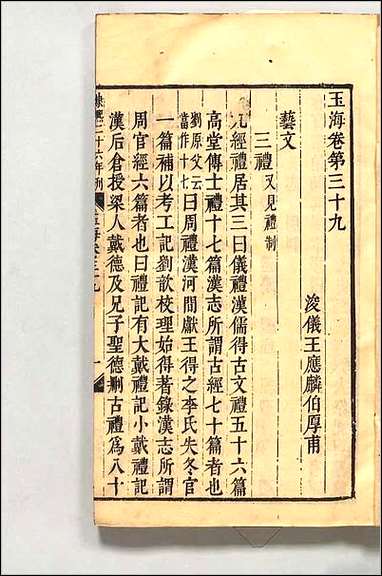 玉海卷第三十九
浚儀王應麟伯厚甫
藝文
三禮又見禮制
九經禮居其三曰儀禮漢儒得古文禮五十六篇
高堂傳士禮十七篇漢志所謂古經七十篇者也
劉原父云當作十七曰周禮漢河間獻王得之李氏失冬官
一篇補以考工記劉歆校理始得著錄漢志所謂
周官經六篇者也曰禮記有大戴禮記小戴禮記
漢后倉授梁人戴德及兄子聖德刪古禮爲八十